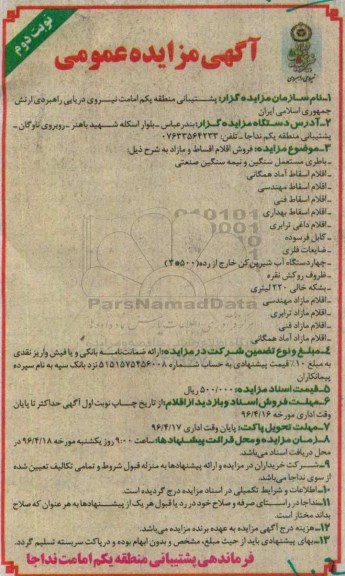 نوبت دوم
آگهی مزایده عمومی
۱-نام سازمان مزایده گزار: پشتیبانی منطقه یکم امامت نیروی دریایی راهبردی ارتش
جمهوری اسلامی ایران
۲-آدرس دستگاه مزایده گزار: بندرعباس-بلوار اسکله شهید باهنر-روبروی ناوگان-
پشتیبانی منطقه یکم نداجا-تلفن: ۰۷۶۳۳۵۶۴۲۳۳
۳-موضوع مزایده: فروش اقلام اقساط و مازاد به شرح ذیل:
-باطری مستعمل سنگین و نیمه سنگین صنعتی
-اقلام اسقاط آماد همگانی
-اقلام اسقاط مهندسی
-اقلام اسقاط فنی
-اقلام اسقاط بهداری
-اقلام داغی ترابری
-کابل فرسوده
-ضایعات فلزی
-چهار دستگاه آب شیرین کن خارج از رده (۵۰۰*۴)
-ظروف روکش نقره
-بشکه خالی ۲۲۰ لیتری
-اقلام مازاد مهندسی
-اقلام مازاد ترابری
-اقلام مازاد فنی
-اقلام مازاد آماد همگانی
۴-مبلغ و نوع تضمین شرکت در مزایده: ارائه ضمانتنامه بانکی و یا فیش واریز نقدی
به مبلغ ۱۰٪ قیمت پیشنهادی به حساب شماره ۵۱۵۱۵۷۵۴۵۶۰۰۸ نزد بانک سپه به نام سپرده
پیمانکاران
۵-قیمت اسناد مزایده: ۵۰۰/۰۰۰ ریال
۶-مهلت فروش اسناد و بازدید از اقلام: از تاریخ چاپ نوبت اول آگهی حداکثر تا پایان
وقت اداری مورخه ۹۶/۴/۱۶
۷-مهلت تحویل پاکت: پایان وقت اداری ۹۶/۴/۱۷
۸-زمان مزایده و محل قرائت پیشنهادها: ساعت ۹:۰۰ روز یکشنبه مورخه ۹۶/۴/۱۸ در
محل دریافت اسناد می‌باشد.
۹-شرکت خریداران در مزایده و ارائه پیشنهادها به منزله قبول شروط و تمامی تکالیف تعیین شده
از سوی نداجا می‌باشد.
۱۰-اطلاعات و شرایط تکمیلی در اسناد مزایده درج گردیده است.
۱۱-نداجا در راستای صرفه و صلاح خود در رد یا قبول هر یک از پیشنهادها به هر عنوان که صلاح
بداند مختار است.
۱۲-هزینه درج آگهی مزایده به عهده برنده مزایده می‌باشد.
۱۳-بهای پیشنهادی باید از حیث مبلغ، مشخص و بدون ابهام بوده و در پاکت سربسته تسلیم گردد.
فرماندهی پشتیبانی منطقه یکم امامت نداجا
ParsNamadData